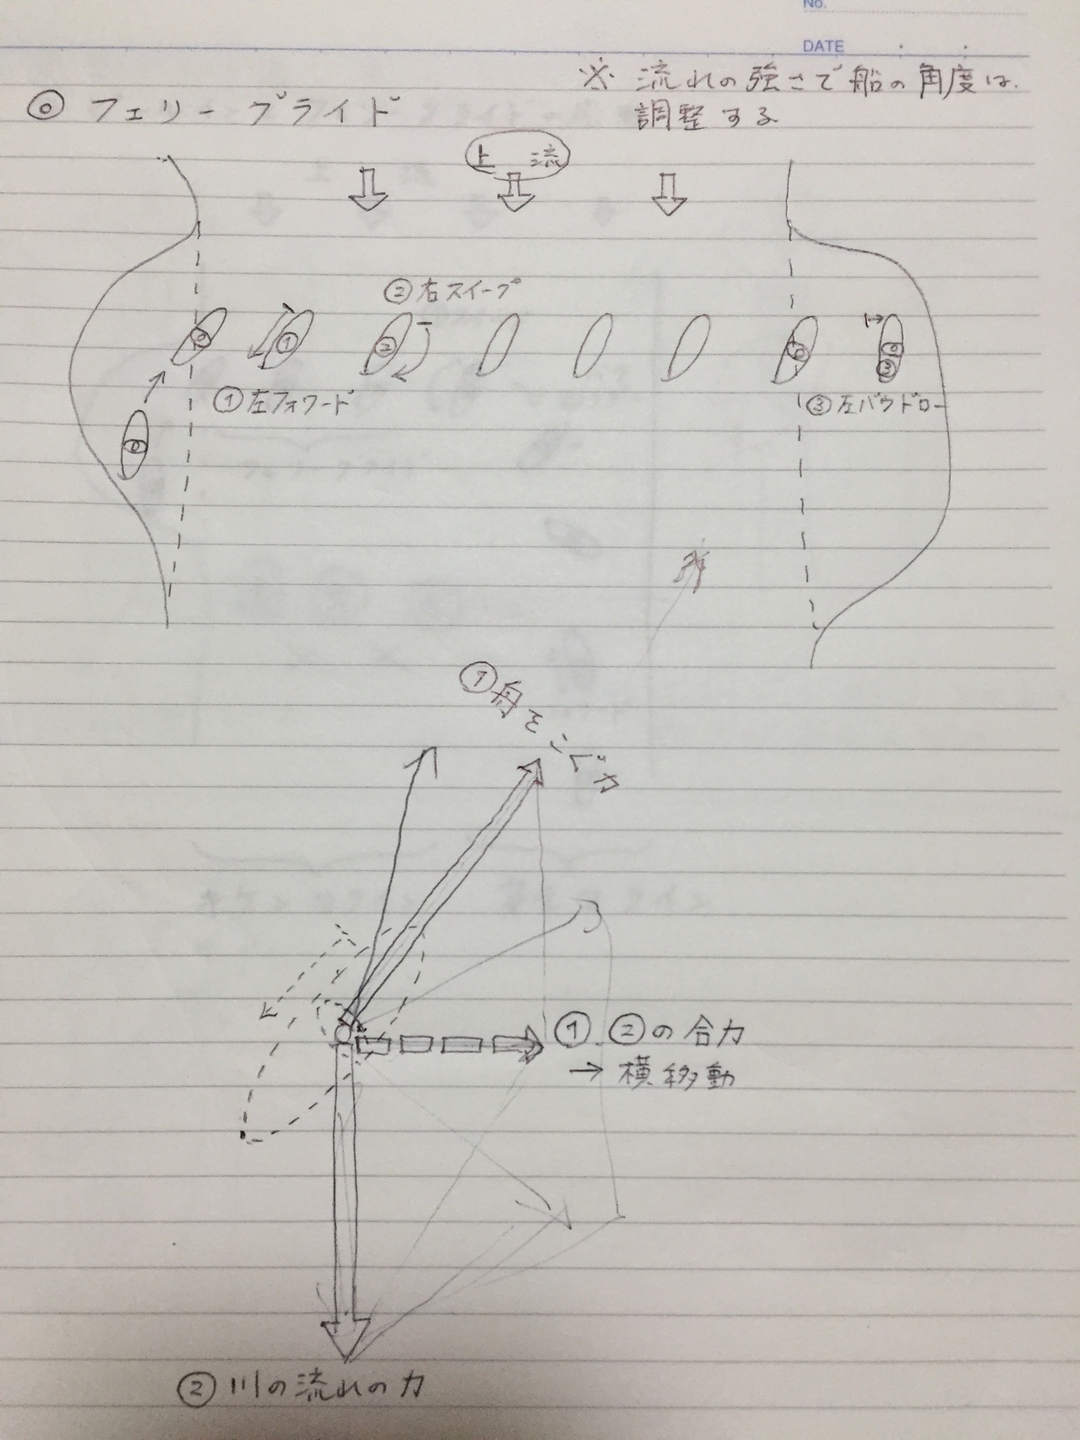 No.
DATE
※ 流れの強さで船の角度は、
調整する
◎ フェリーグライド
上流
②右スイープ
① ②
①左フォワード
③
③左バウドロー
①舟をこぐ力
①②の合力
→ 横移動
②川の流れの力